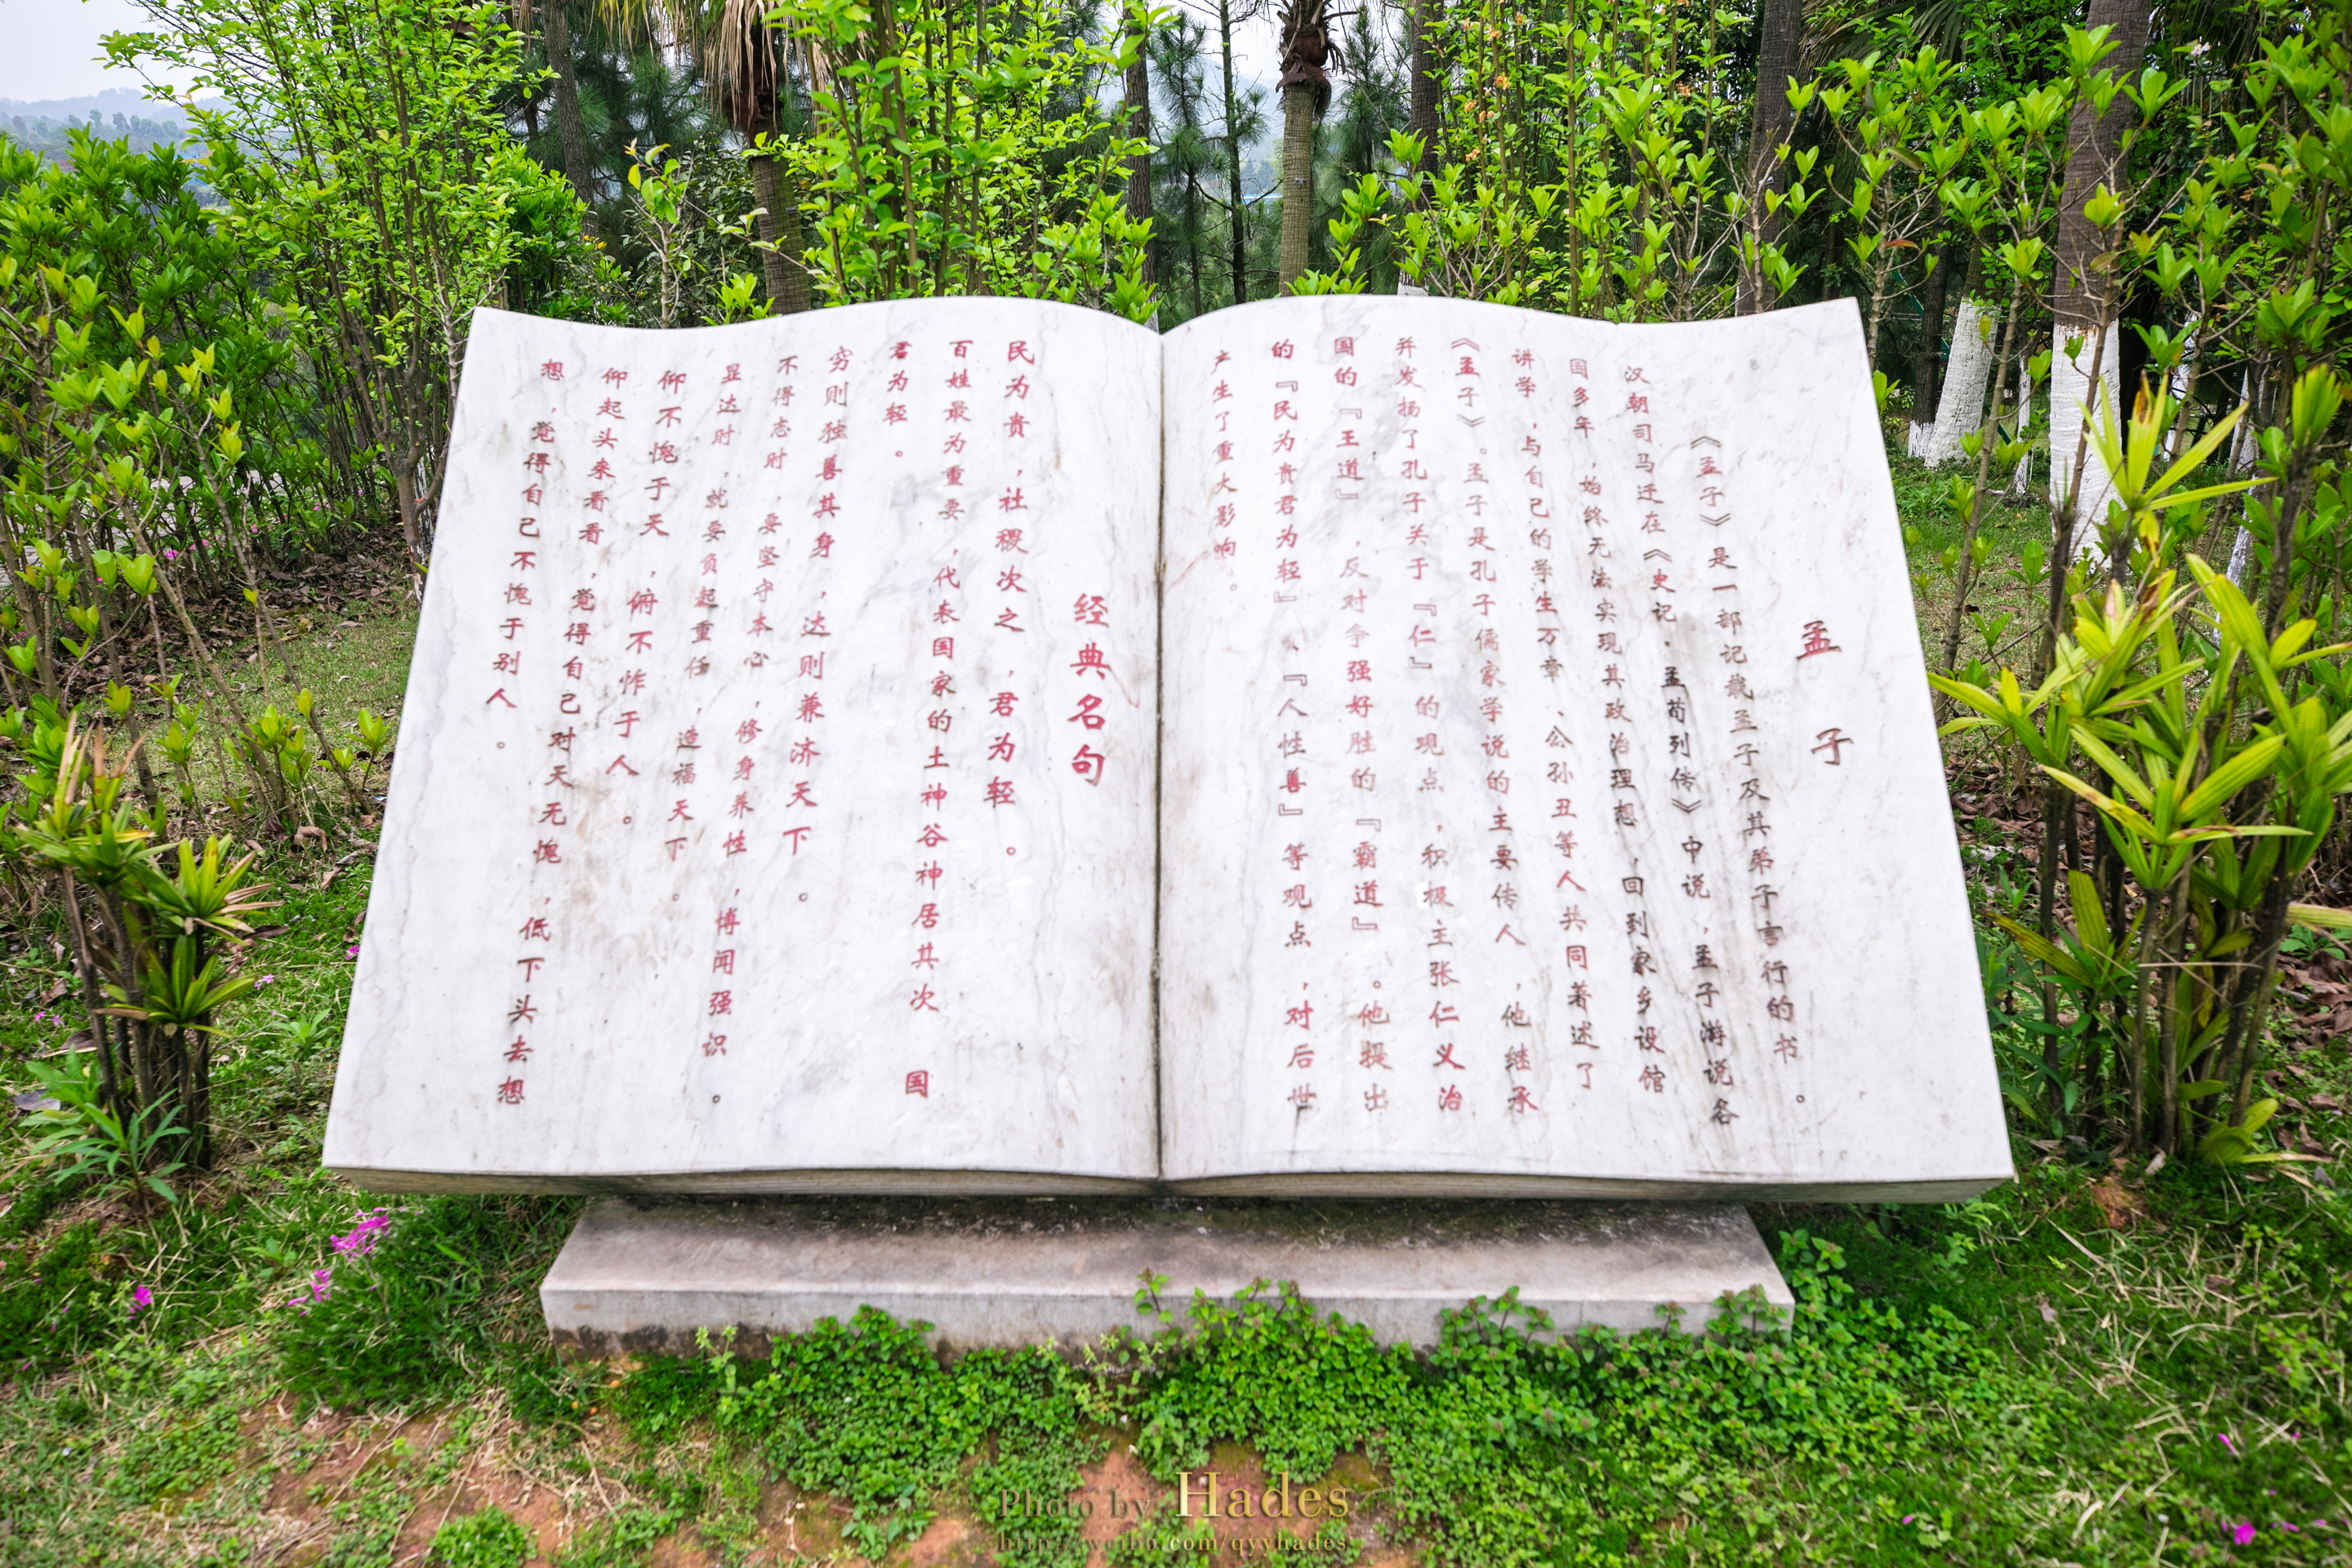 孟子
《孟子》是一部记载孟子及其弟子言行的书。
汉朝司马迁在《史记·孟荀列传》中说，孟子游说各
国多年，始终无法实现其政治理想，回到家乡设馆
讲学，与自己的学生万章、公孙丑等人共同著述了
《孟子》。孟子是孔子儒家学说的主要传人，他继承
并发扬了孔子关于『仁』的观点，积极主张仁义治
国的『王道』，反对争强好胜的『霸道』。他提出
的『民为贵君为轻』、『人性善』等观点，对后世
产生了重大影响。
经典名句
民为贵，社稷次之，君为轻。
百姓最为重要，代表国家的土神谷神居其次 国
君为轻。
穷则独善其身，达则兼济天下。
不得志时，要坚守本心，修身养性，博闻强识。
显达时，就要负起重任，造福天下。
仰不愧于天，俯不怍于人。
仰起头来看看，觉得自己对天无愧，低下头去想
想，觉得自己不愧于别人。
Photo by Hades
http://weibo.com/qyyhades